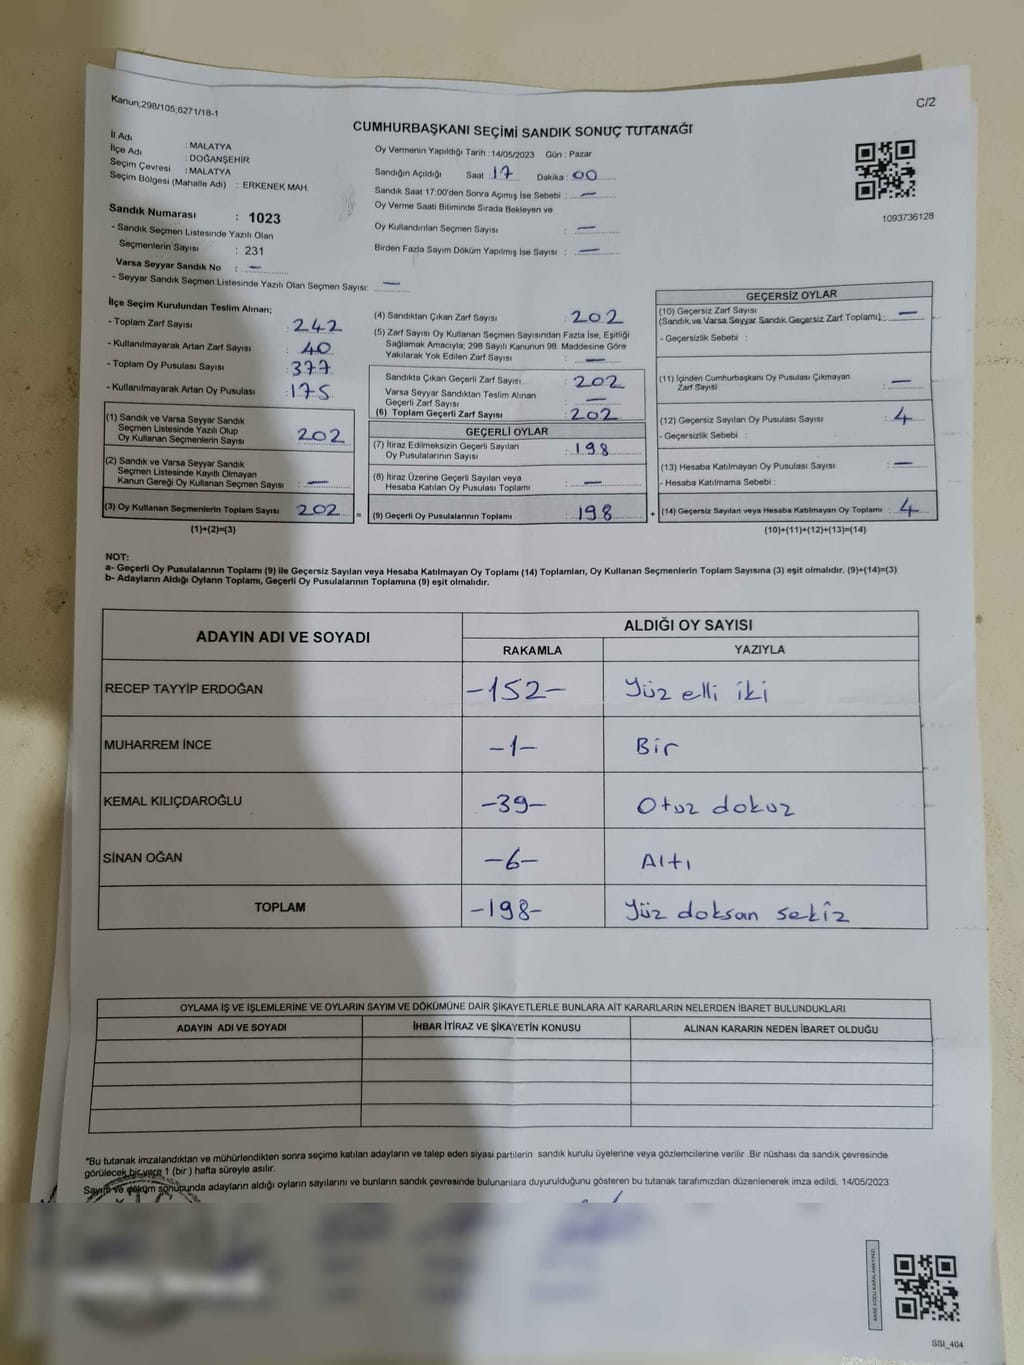 Kanun;298/105,6271/18-1
C/2
CUMHURBAŞKANI SEÇİMİ SANDIK SONUÇ TUTANAĞI
İl Adı : MALATYA
İlçe Adı : DOĞANŞEHİR
Seçim Çevresi : MALATYA
Seçim Bölgesi (Mahalle Adı) : ERKENEK MAH.
Sandık Numarası : 1023
- Sandık Seçmen Listesinde Yazılı Olan
Seçmenlerin Sayısı : 231
Varsa Seyyar Sandık No : —
- Seyyar Sandık Seçmen Listesinde Yazılı Olan Seçmen Sayısı: —
Oy Vermenin Yapıldığı Tarih : 14/05/2023 Gün : Pazar
Sandığın Açıldığı Saat : 17 Dakika : 00
Sandık Saat 17:00'den Sonra Açımış İse Sebebi : —
Oy Verme Saati Bitiminde Sırada Bekleyen ve
Oy Kullandırılan Seçmen Sayısı : —
Birden Fazla Sayım Döküm Yapılmış İse Sayısı : —
1093736128
İlçe Seçim Kurulundan Teslim Alınan;
- Toplam Zarf Sayısı : 242
- Kullanılmayarak Artan Zarf Sayısı : 40
- Toplam Oy Pusulası Sayısı : 377
- Kullanılmayarak Artan Oy Pusulası : 175
(1) Sandık ve Varsa Seyyar Sandık
Seçmen Listesinde Yazılı Olup
Oy Kullanan Seçmenlerin Sayısı : 202
(2) Sandık ve Varsa Seyyar Sandık
Seçmen Listesinde Kayıtlı Olmayan
Kanun Gereği Oy Kullanan Seçmen Sayısı : —
(3) Oy Kullanan Seçmenlerin Toplam Sayısı : 202 =
(1)+(2)=(3)
(4) Sandıktan Çıkan Zarf Sayısı : 202
(5) Zarf Sayısı Oy Kullanan Seçmen Sayısından Fazla İse, Eşitliği
Sağlamak Amacıyla; 298 Sayılı Kanunun 98. Maddesine Göre
Yakılarak Yok Edilen Zarf Sayısı : —
Sandıkta Çıkan Geçerli Zarf Sayısı : 202
Varsa Seyyar Sandıktan Teslim Alınan
Geçerli Zarf Sayısı : —
(6) Toplam Geçerli Zarf Sayısı : 202
GEÇERLİ OYLAR
(7) İtiraz Edilmeksizin Geçerli Sayılan
Oy Pusulalarının Sayısı : 198
(8) İtiraz Üzerine Geçerli Sayılan veya
Hesaba Katılan Oy Pusulası Toplamı : —
(9) Geçerli Oy Pusulalarının Toplamı : 198 +
GEÇERSİZ OYLAR
(10) Geçersiz Zarf Sayısı
(Sandık ve Varsa Seyyar Sandık Geçersiz Zarf Toplamı) : —
- Geçersizlik Sebebi :
(11) İçinden Cumhurbaşkanı Oy Pusulası Çıkmayan
Zarf Sayısı : —
(12) Geçersiz Sayılan Oy Pusulası Sayısı : 4
- Geçersizlik Sebebi :
(13) Hesaba Katılmayan Oy Pusulası Sayısı : —
- Hesaba Katılmama Sebebi :
(14) Geçersiz Sayılan veya Hesaba Katılmayan Oy Toplamı : 4
(10)+(11)+(12)+(13)=(14)
NOT:
a- Geçerli Oy Pusulalarının Toplamı (9) ile Geçersiz Sayılan veya Hesaba Katılmayan Oy Toplamı (14) Toplamları, Oy Kullanan Seçmenlerin Toplam Sayısına (3) eşit olmalıdır. (9)+(14)=(3)
b- Adayların Aldığı Oyların Toplamı, Geçerli Oy Pusulalarının Toplamına (9) eşit olmalıdır.
ADAYIN ADI VE SOYADI ALDIĞI OY SAYISI
RAKAMLA YAZIYLA
RECEP TAYYİP ERDOĞAN -152- Yüz elli iki
MUHARREM İNCE -1- Bir
KEMAL KILIÇDAROĞLU -39- Otuz dokuz
SİNAN OĞAN -6- Altı
TOPLAM -198- Yüz doksan sekiz
OYLAMA İŞ VE İŞLEMLERİNE VE OYLARIN SAYIM VE DÖKÜMÜNE DAİR ŞİKAYETLERLE BUNLARA AİT KARARLARIN NELERDEN İBARET BULUNDUKLARI
ADAYIN ADI VE SOYADI İHBAR İTİRAZ VE ŞİKAYETİN KONUSU ALINAN KARARIN NEDEN İBARET OLDUĞU
*Bu tutanak imzalandıktan ve mühürlendikten sonra seçime katılan adayların ve talep eden siyasi partilerin sandık kurulu üyelerine veya gözlemcilerine verilir .Bir nüshası da sandık çevresinde
görülecek bir yere 1 (bir ) hafta süreyle asılır.
Sayım ve döküm sonucunda adayların aldığı oyların sayılarını ve bunların sandık çevresinde bulunanlara duyurulduğunu gösteren bu tutanak tarafımızdan düzenlenerek imza edildi. 14/05/2023
SSI_404